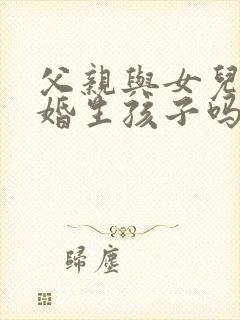 父親與女兒
婚生孩子吗
歸塵